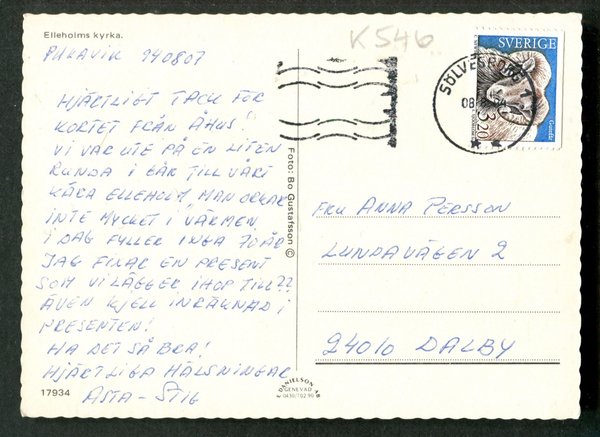 Elleholms kyrka.
PUKAVIK 940807
HJÄRTLIGT TACK FÖR
KORTET FRÅN ÅHUS!
VI VAR UTE PÅ EN LITEN
RUNDA I GÅR TILL VÅRT
KÄRA ELLEHOLM, MAN ORKAR
INTE MYCKET I VÄRMEN
I DAG FYLLER INGA 70 ÅR
JAG FIXAR EN PRESENT
SOM VI LÄGGER IHOP TILL??
ÄVEN KJELL INRÄKNAD I
PRESENTEN!
HA DET SÅ BRA!
HJÄRTLIGA HÄLSNINGAR
ASTA - STIG
17934
Foto: Bo Gustafsson ©
DANIELSON AB
GENEVAD
0430/702 90
K546
SVERIGE
3.20
SÖLVESBORG 1
08
FRU ANNA PERSSON
LUNDAVÄGEN 2
24010 DALBY